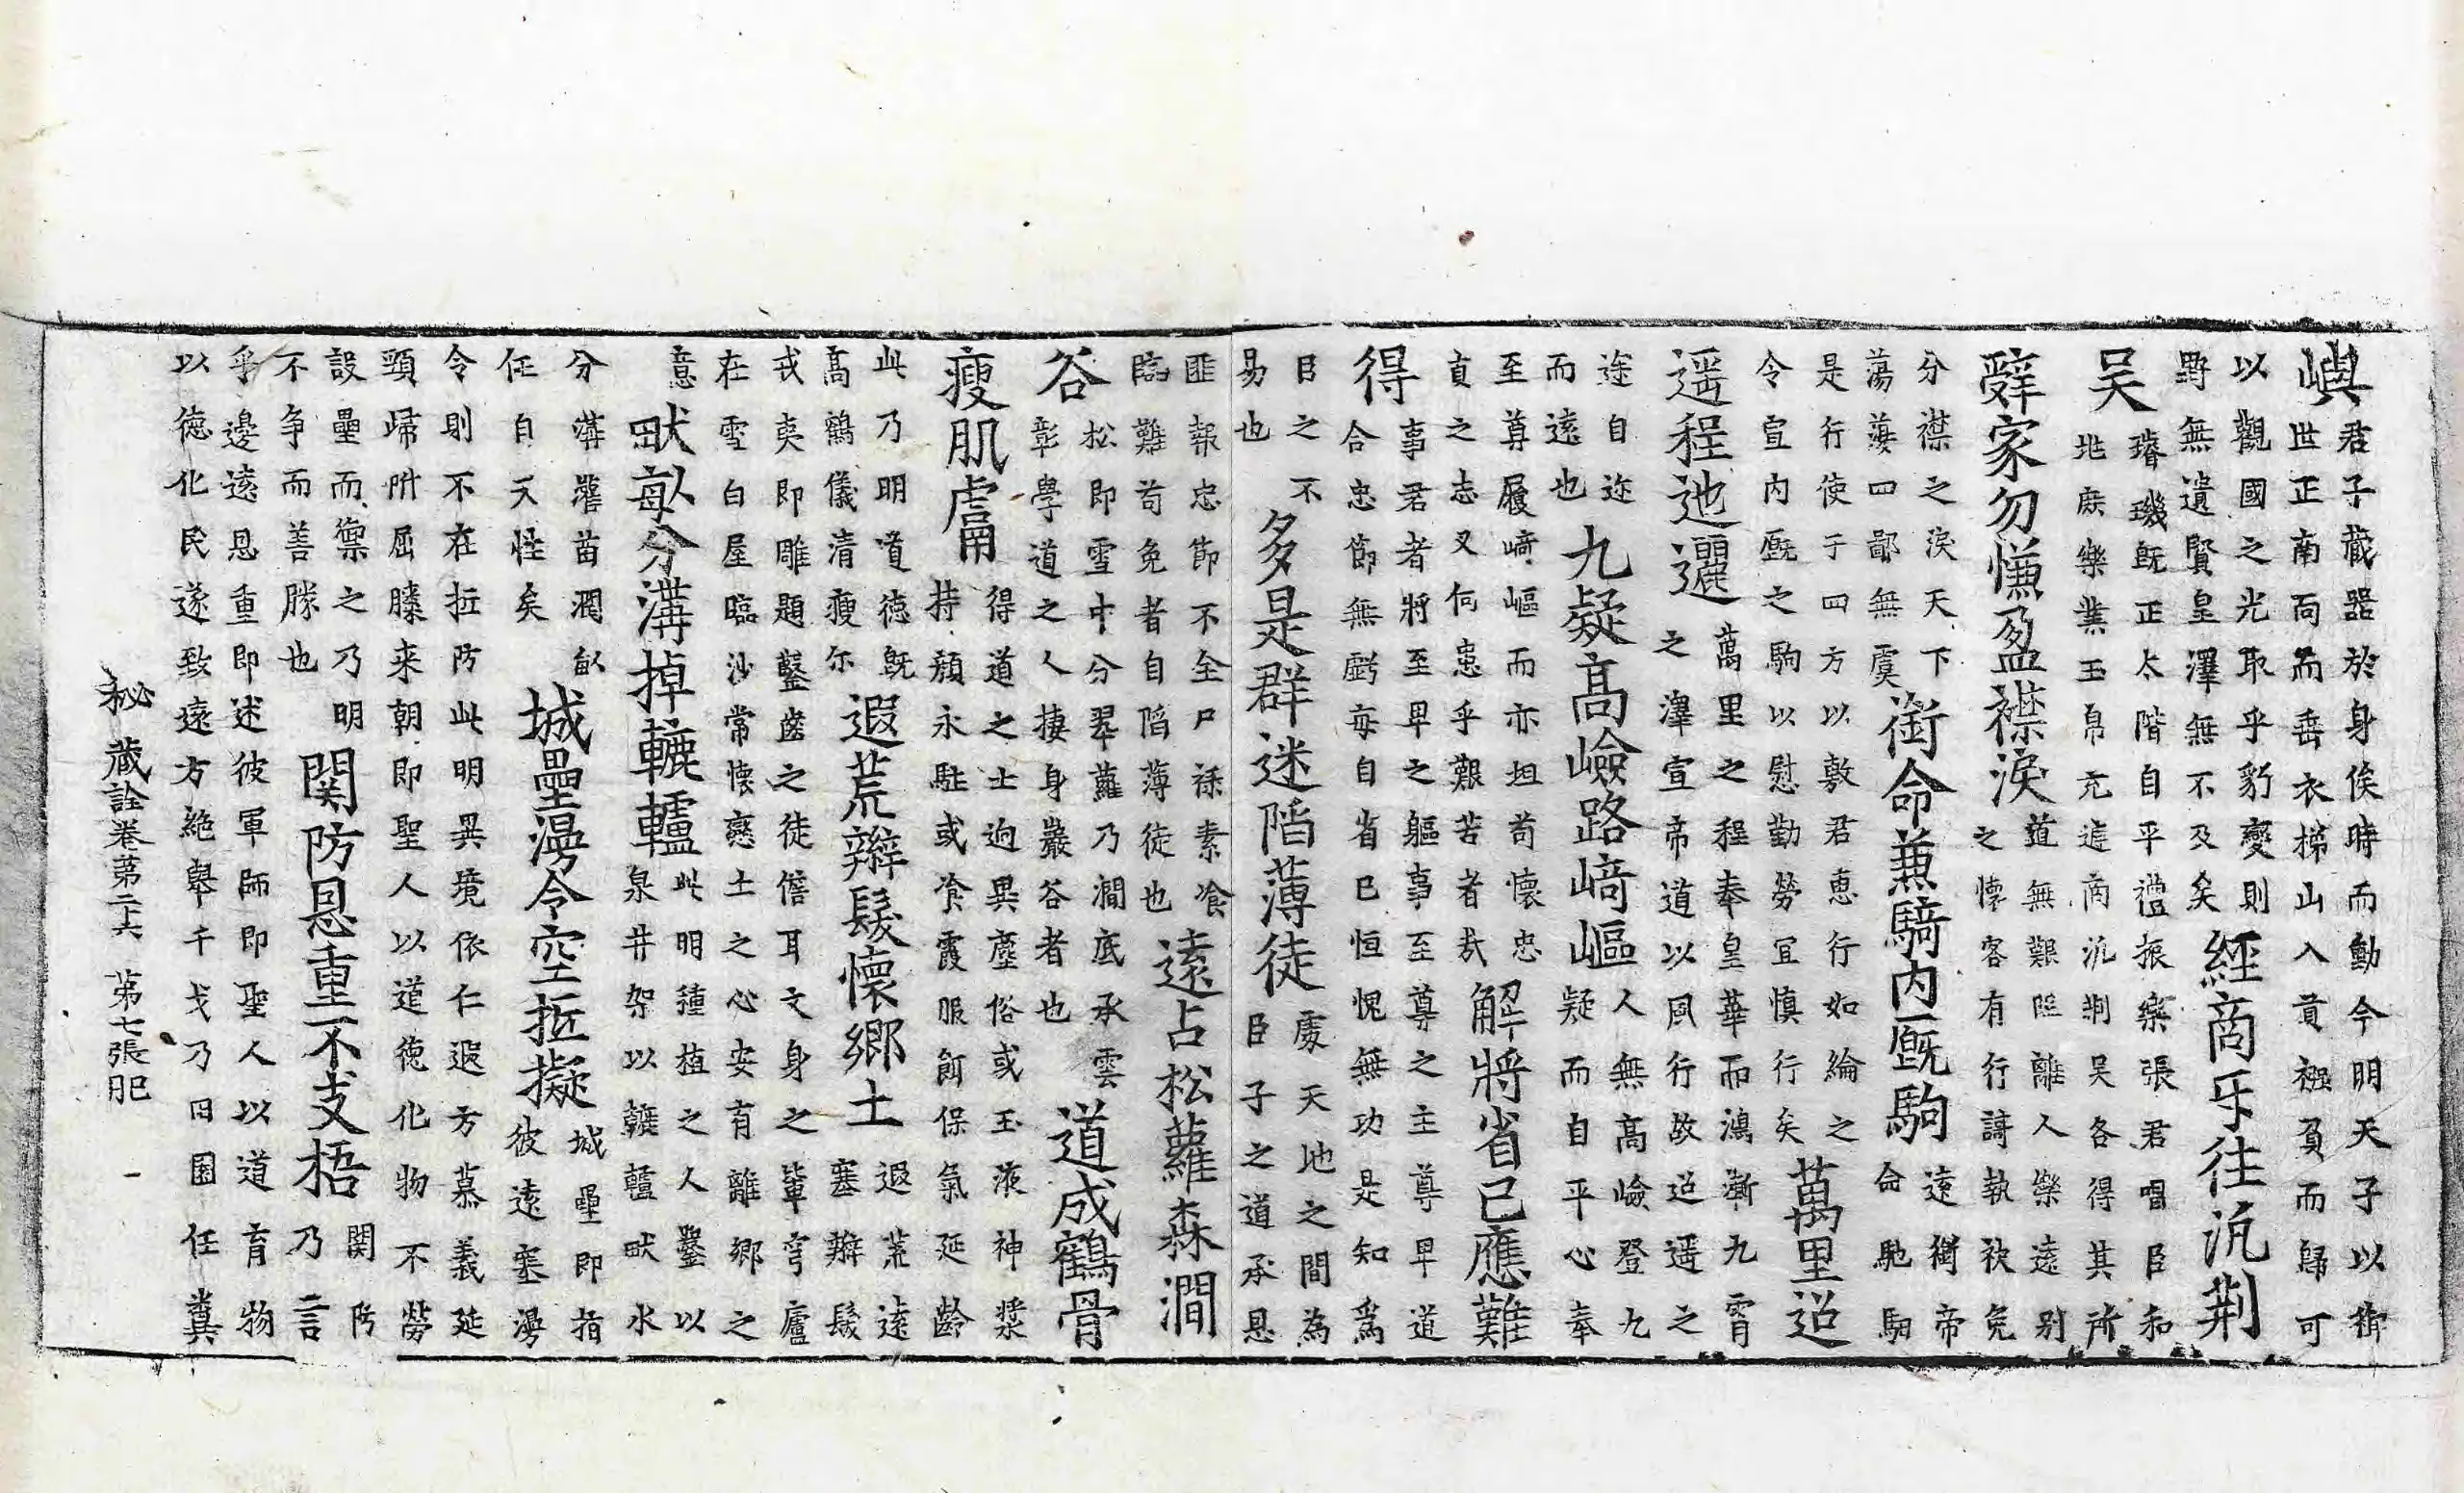 嶼君子蔵器於身俟時而動今明天子以
世正南面而垂衣梯山入貢襁負而歸可
以觀國之光取乎豹變則
野無遺賢皇澤無不及矣經商乐往汎荆
吴璿璣既正太階自平禮振樂張君唱臣和
地庶樂業玉帛充進商汎荆吴各得其所
辭家勿慊盈襟淚道無艱阻離人樂遠别
之懷客有行謌執袂免
分襟之淚天下
蕩蕩四鄙無虞銜命兼騎内廐駒遠銜帝
命馳駒
是行使于四方以敷君恵行如綸之
令宣内廐之駒以慰勤勞宜慎行矣萬里迢
遥程迆邐萬里之程奉皇華而鴻漸九霄
之澤宣帝道以風行故迢遥之
途自迩
而遠也九疑髙嶮路﨑嶇人無髙嶮登九
疑而自平心奉
至尊履﨑嶇而亦坦苟懷忠
貞之志又何患乎艱苦者㢤解將省已應難
得事君者將至卑之軀事至尊之主尊卑道
合忠節無虧每自省已恒愧無功是知爲
臣之不
易也多是群迷䧟薄徒處天地之間為
臣子之道承恩
匪報忠節不全尸禄素飡
臨難苟免者自䧟薄徒也遠占松蘿森澗
谷松即雪中分翠蘿乃澗底承雲
彰學道之人棲身巖谷者也道成鶴骨
瘦肌膚得道之士逈異塵俗或玉液神漿
持顔永駐或飡霞服餌保氣延齡
此乃明道徳既
髙鶴儀清瘦尔遐荒辮髮懷郷土遐荒逺
塞辮髮
戎夷即雕題鑿齒之徒儋耳文身之軰穹廬
在雪白屋臨沙常懷戀土之心安有離郷之
意畎畝分溝掉轆轤此明種植之人鑿以
泉井架以轆轤畎水
分溝灌苗潤畝
任自天恠矣城壘漫令空抵擬城壘即指
彼遠塞漫
令則不在抵防此明異境依仁遐方慕義延
頸歸附屈膝来朝即聖人以道徳化物不勞
設壘而禦之乃明
不争而善勝也関防恩重不支梧関防
乃言
乎邊逺恩重即述彼軍師即聖人以道育物
以徳化民遂致遠方絶舉千戈乃曰園任糞
秘藏詮卷第二十六 第七張 肥